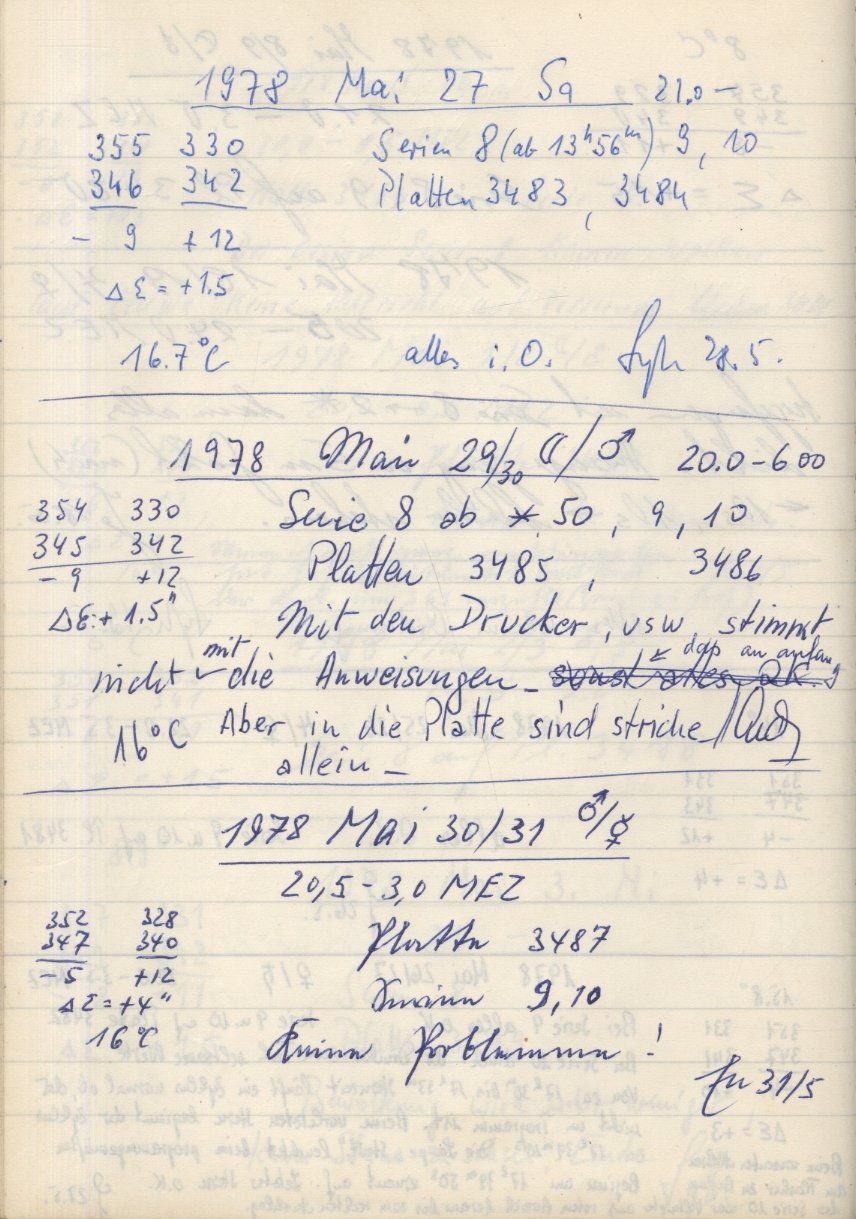 1978 Mai 27 Sa 21.0 —
355 330 Serien 8 (ab 13h56m) 9, 10
346 342 Platten 3483, 3484
- 9 + 12
Δε = +1.5
16.7°C alles i.O. 28.5.
1978 Mai 29/30 ☾/♂ 20.0-6 00
354 330 Serie 8 ab *. 50, 9, 10
345 342 Platten 3485, 3486
- 9 +12
Δε + 1.5" Mit den Drucker, usw stimmt
nicht mit die Anweisungen - daß an anfang
16°C Aber in die Platte sind striche
allein -
1978 Mai 30/31 ♂/☿
20,5-3,0 MEZ
352 328 Platte 3487
347 340
-5 +12 Serien 9,10
Δε = +4"
16°C Keine Probleme!
31/5